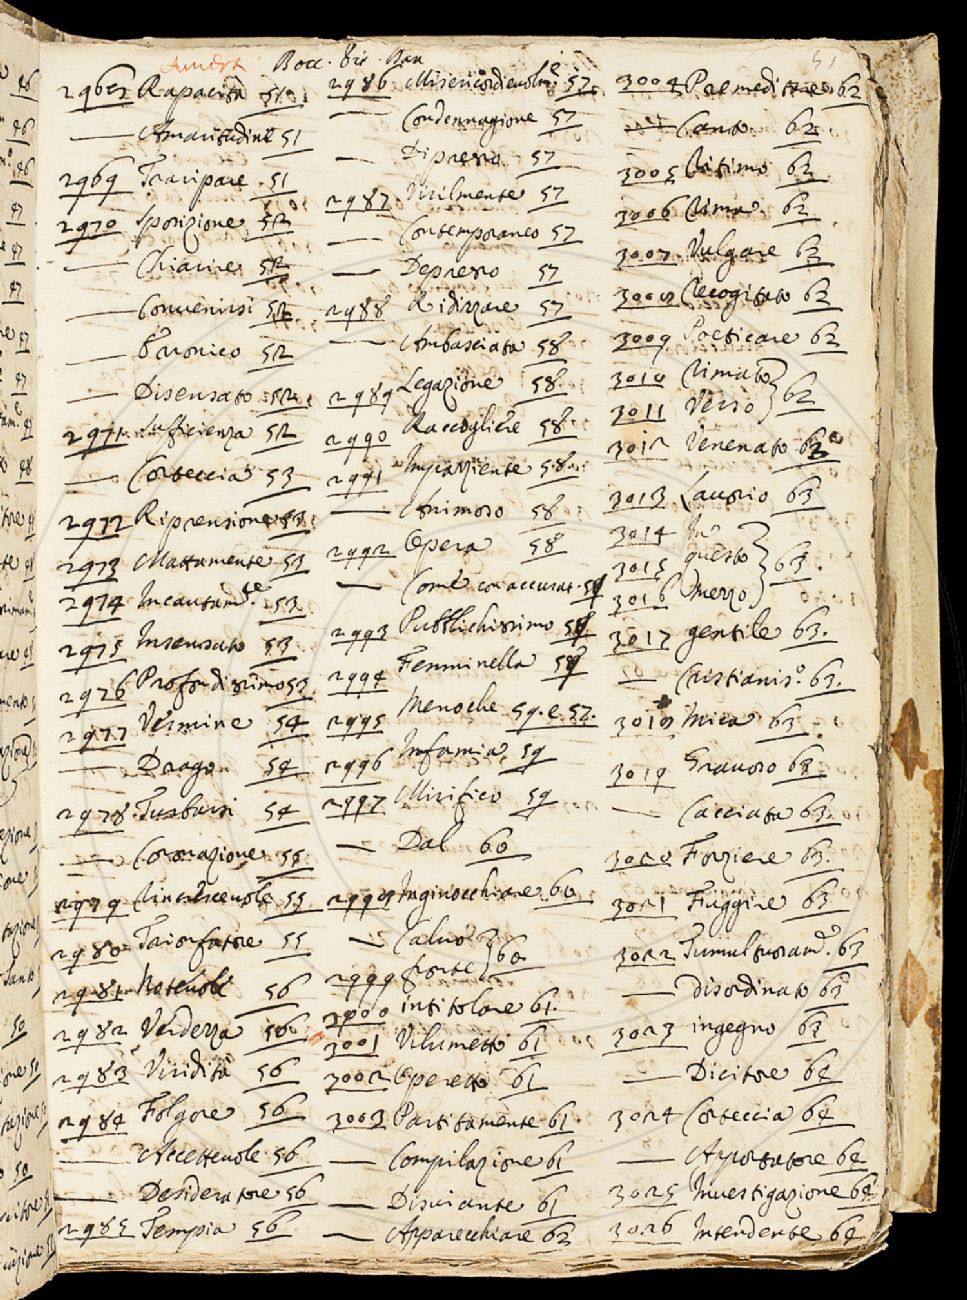 Bocc. Vis. Ban
51
2968 Rapacità 51
—— Amaritudine 51
2969 Traripare 51
2970 Sposizione 52
—— Chiarire 52
—— Convenirsi 52
—— Erronico 52
—— Disensato 52
2971 Sufficienza 52
—— Corteccia 53
2972 Riprensione 53
2973 Mattamente 53
2974 Incautam.te 53
2975 Insensato 53
2976 Profondissimo 53
2977 Vermine 54
—— Drago 54
2978 Turbarsi 54
—— Coronazione 55
2979 Rincrescevole 55
2980 Trionfatore 55
2981 Notevole 56
2982 Verdezza 56
2983 Viridità 56
2984 Folgore 56
—— Accettevole 56
—— Desideratore 56
2985 Tempia 56
2986 Misericordievolm.e 57
—— Condennagione 57
—— Dipresso 57
2987 Virilmente 57
—— Contemporaneo 57
—— Depresso 57
2988 Ridizzare 57
—— Ambasciata 58
2989 Legazione 58
2990 Raccogliere 58
2991 Impaziente 58
—— Animoso 58
2992 Opera 58
—— Come con accusat. 59
2993 Pubblichissimo 59
2994 Femminella 59
2995 Menoche 59. e 57.
2996 Infamia 59
2997 Mirifico 59
—— Dal 60
2998 Inginocchiare 60
—— Calvo
2999 fronte } 60
3000 intitolare 61
3001 Vilumetto 61
3002 Operetta 61
3003 Partitamente 61
—— Compilazione 61
—— Disviante 61
—— Apparecchiare 62
3004 Premeditare 62
—— Canto 62
3005 Ritimo 62
3006 Rima 62
3007 Vulgare 62
3008 Recogitato 62
3009 Poeticare 62
3010 Rimato
3011 Verso } 62
3012 Venenato 62
3013 Lavorio 63
3014 In
3015 questo } 63
3016 Mezzo
3017 gentile 63.
—— Cristianis.o 63.
3018 Mica 63
3019 Gravoso 63
—— Cacciata 63.
3020 Forziere 63.
3021 Fuggire 63
3022 Tumultuorand.o 63
—— Disordinato 63
3023 ingegno 63
—— Dicitore 64
3024 Corteccia 64
—— Apportatore 64
3025 Investigazione 64
3026 Intendente 64